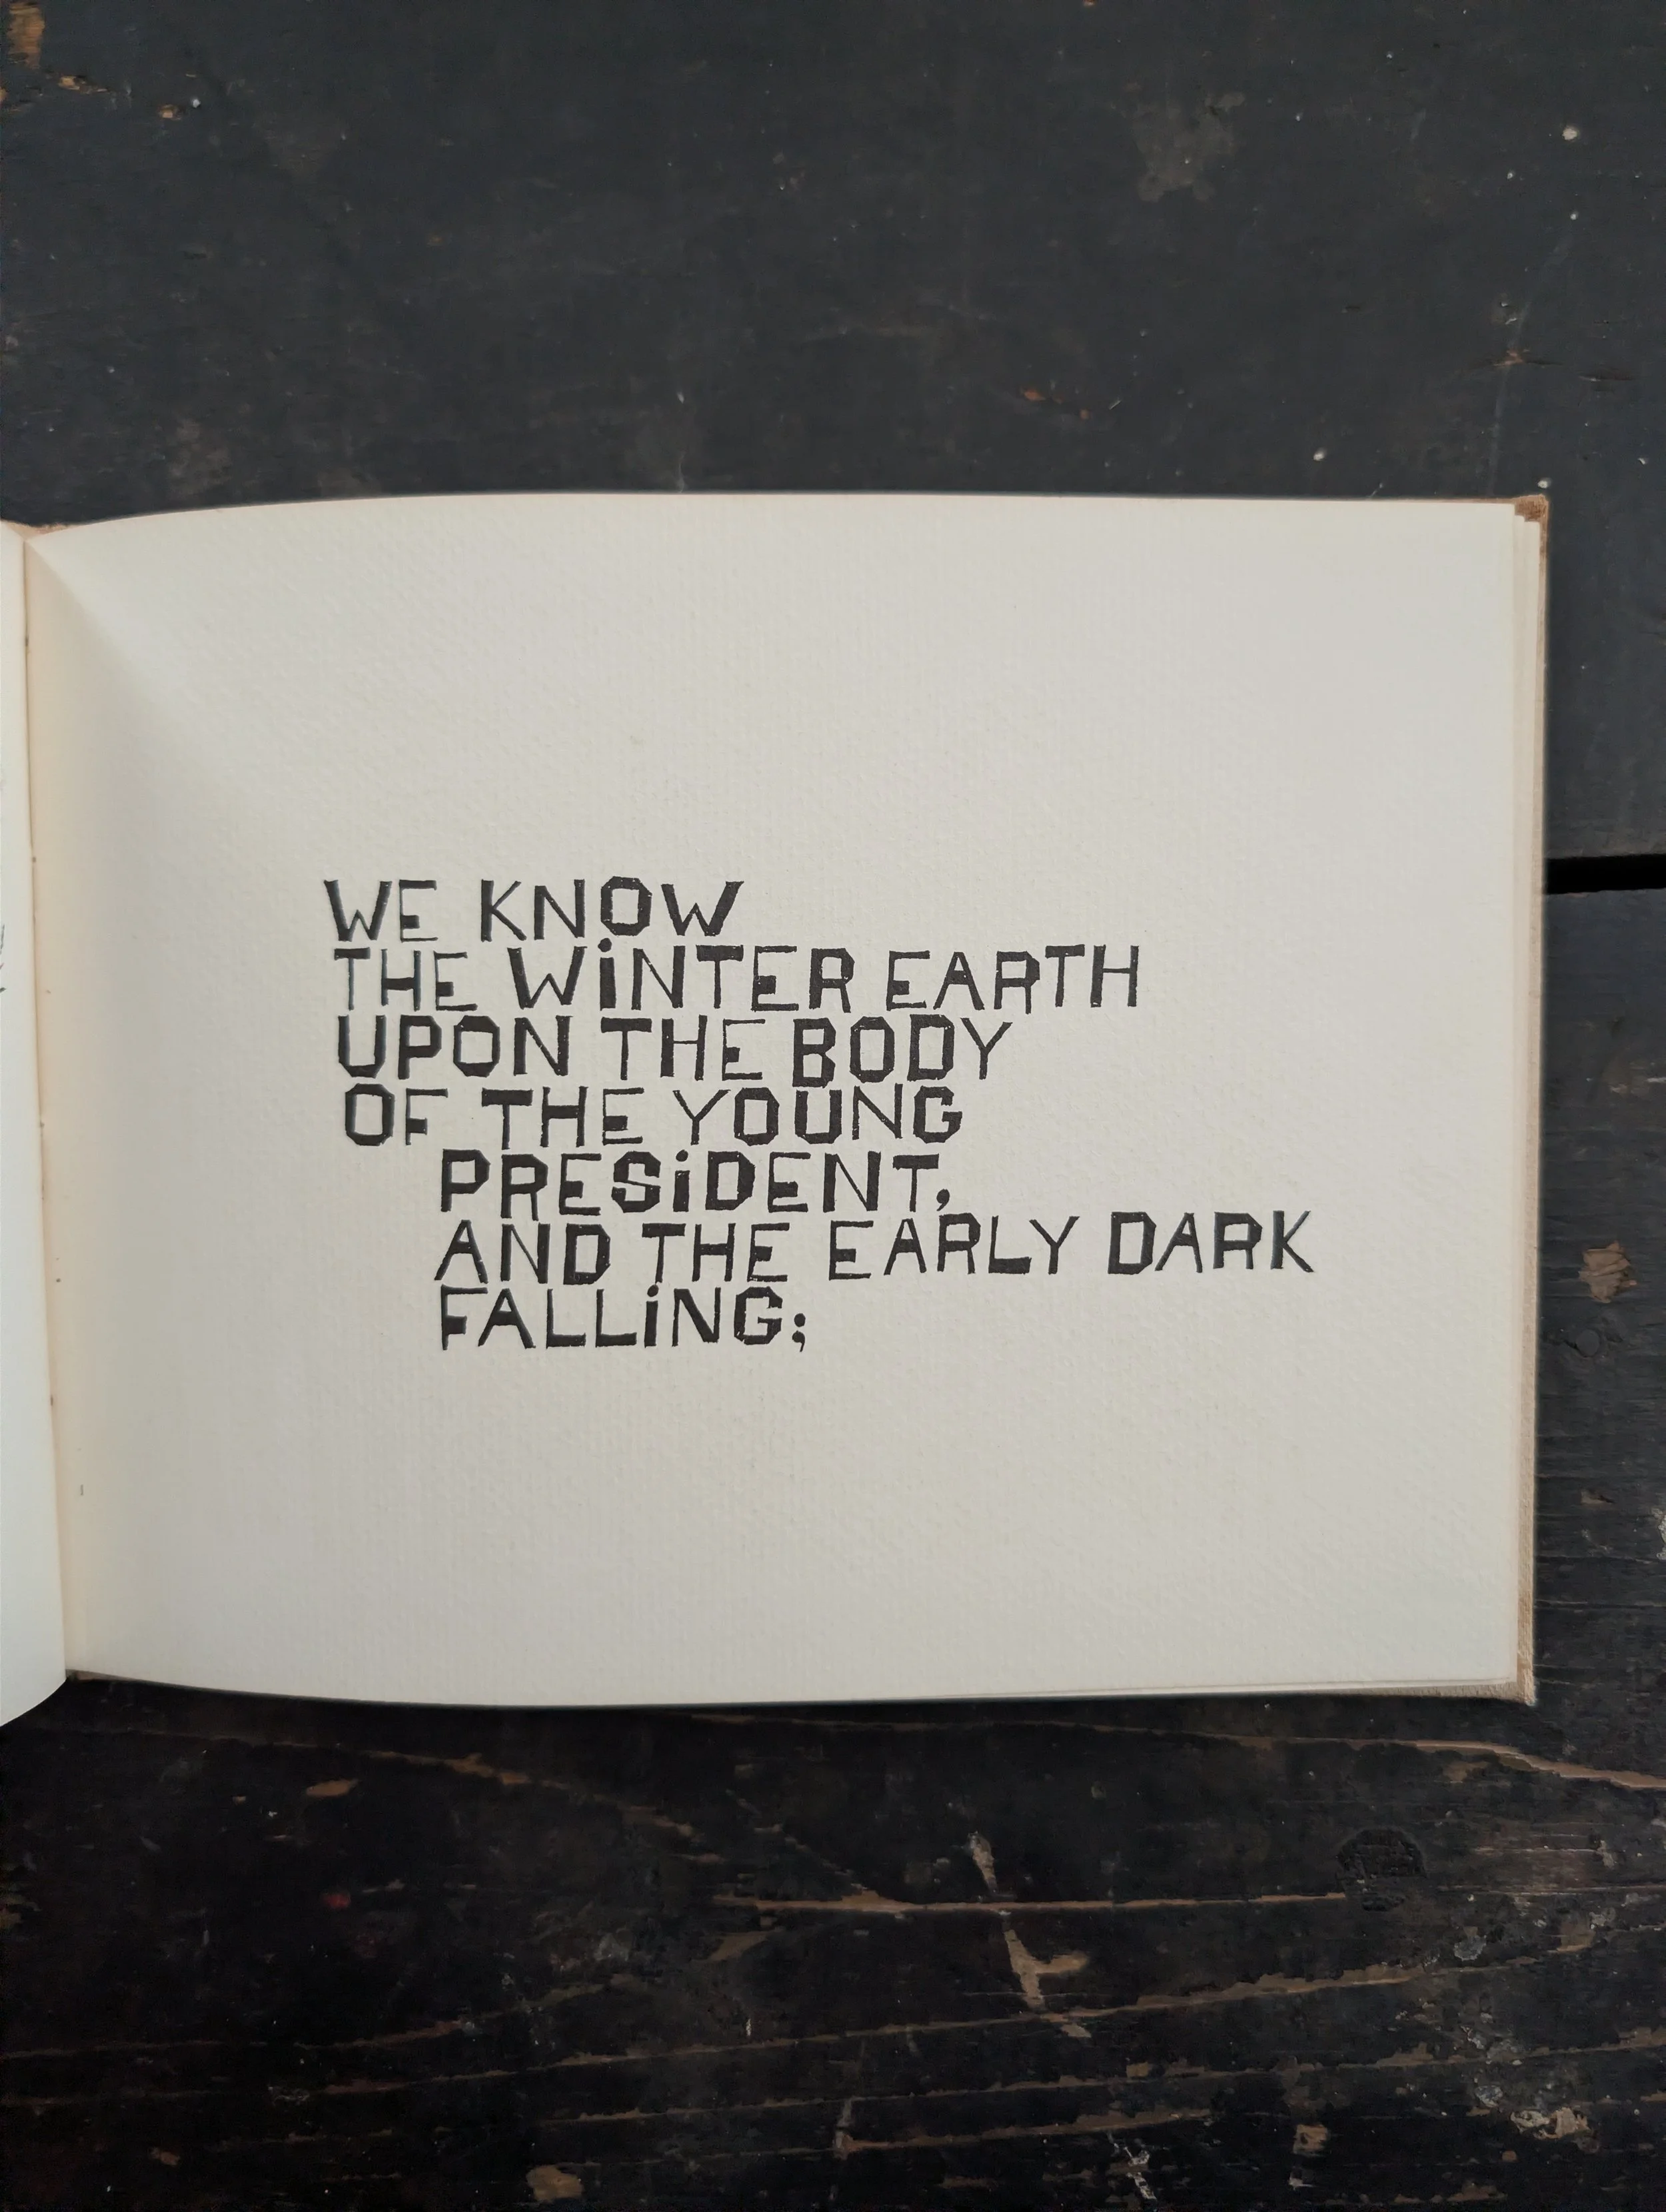 WE KNOW
THE WiNTER EARTH
UPON THE BODY
OF THE YOUNG
PRESiDENT,
AND THE EARLY DARK
FALLiNG;